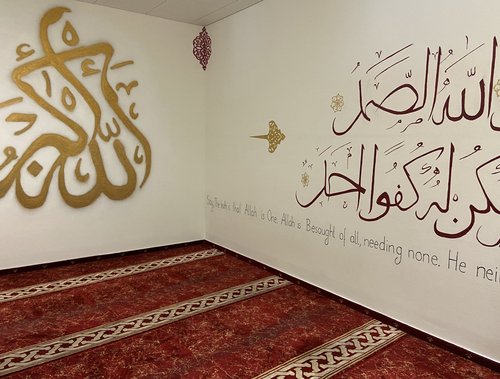 الله أكبر
اللهُ الصَّمَدُ
لَهُ كُفُوًا أَحَدٌ
Say, The truth is that Allah is One. Allah is Besought of all, needing none. He